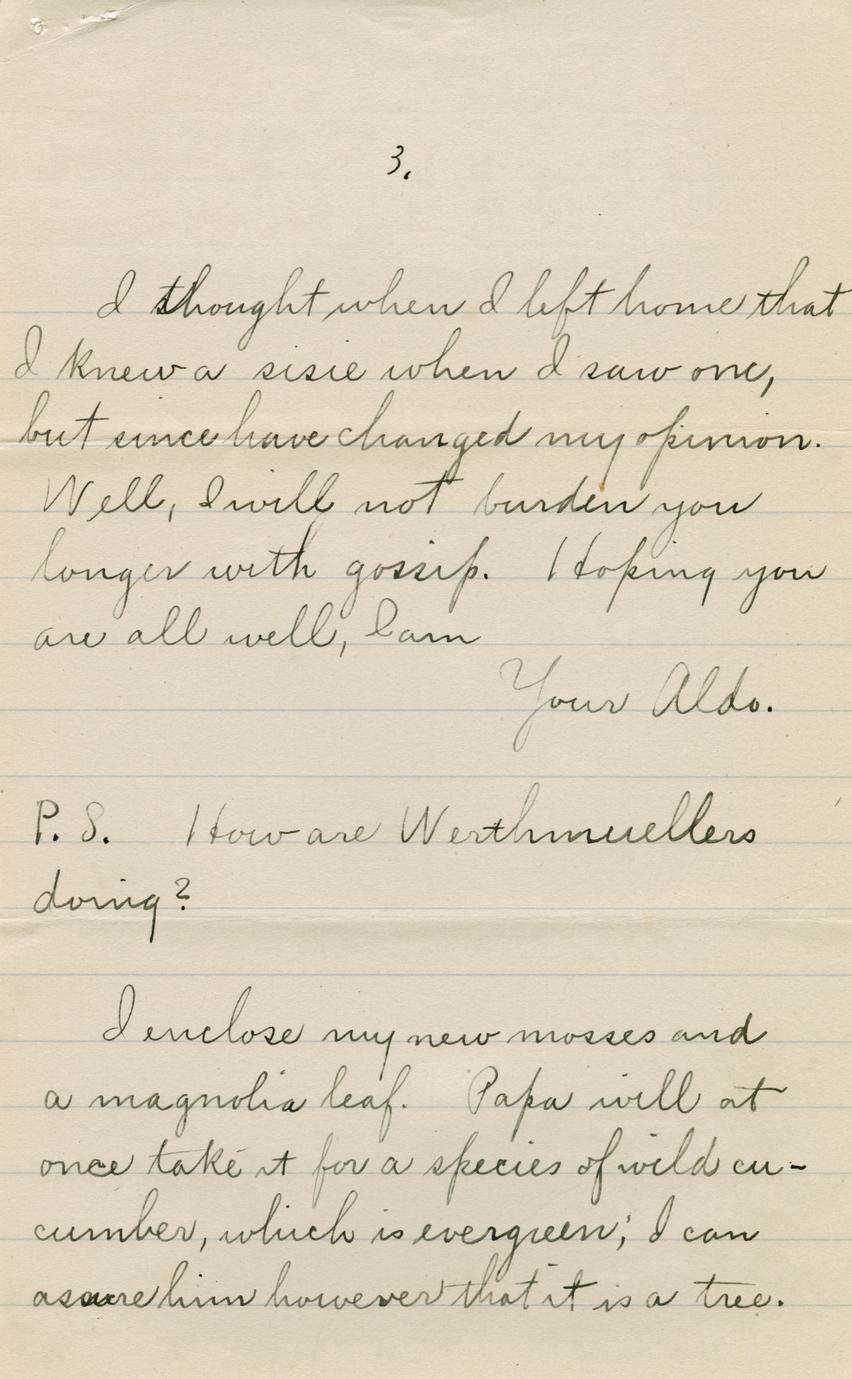 3.
I thought when I left home that
I knew a sisie when I saw one,
but since have changed my opinion.
Well, I will not burden you
longer with gossip. Hoping you
are all well, I am
Your Aldo.
P. S. How are Werthmuellers
doing?
I enclose my new mosses and
a magnolia leaf. Papa will at
once take it for a species of wild cu-
cumber, which is evergreen; I can
assure him however that it is a tree.